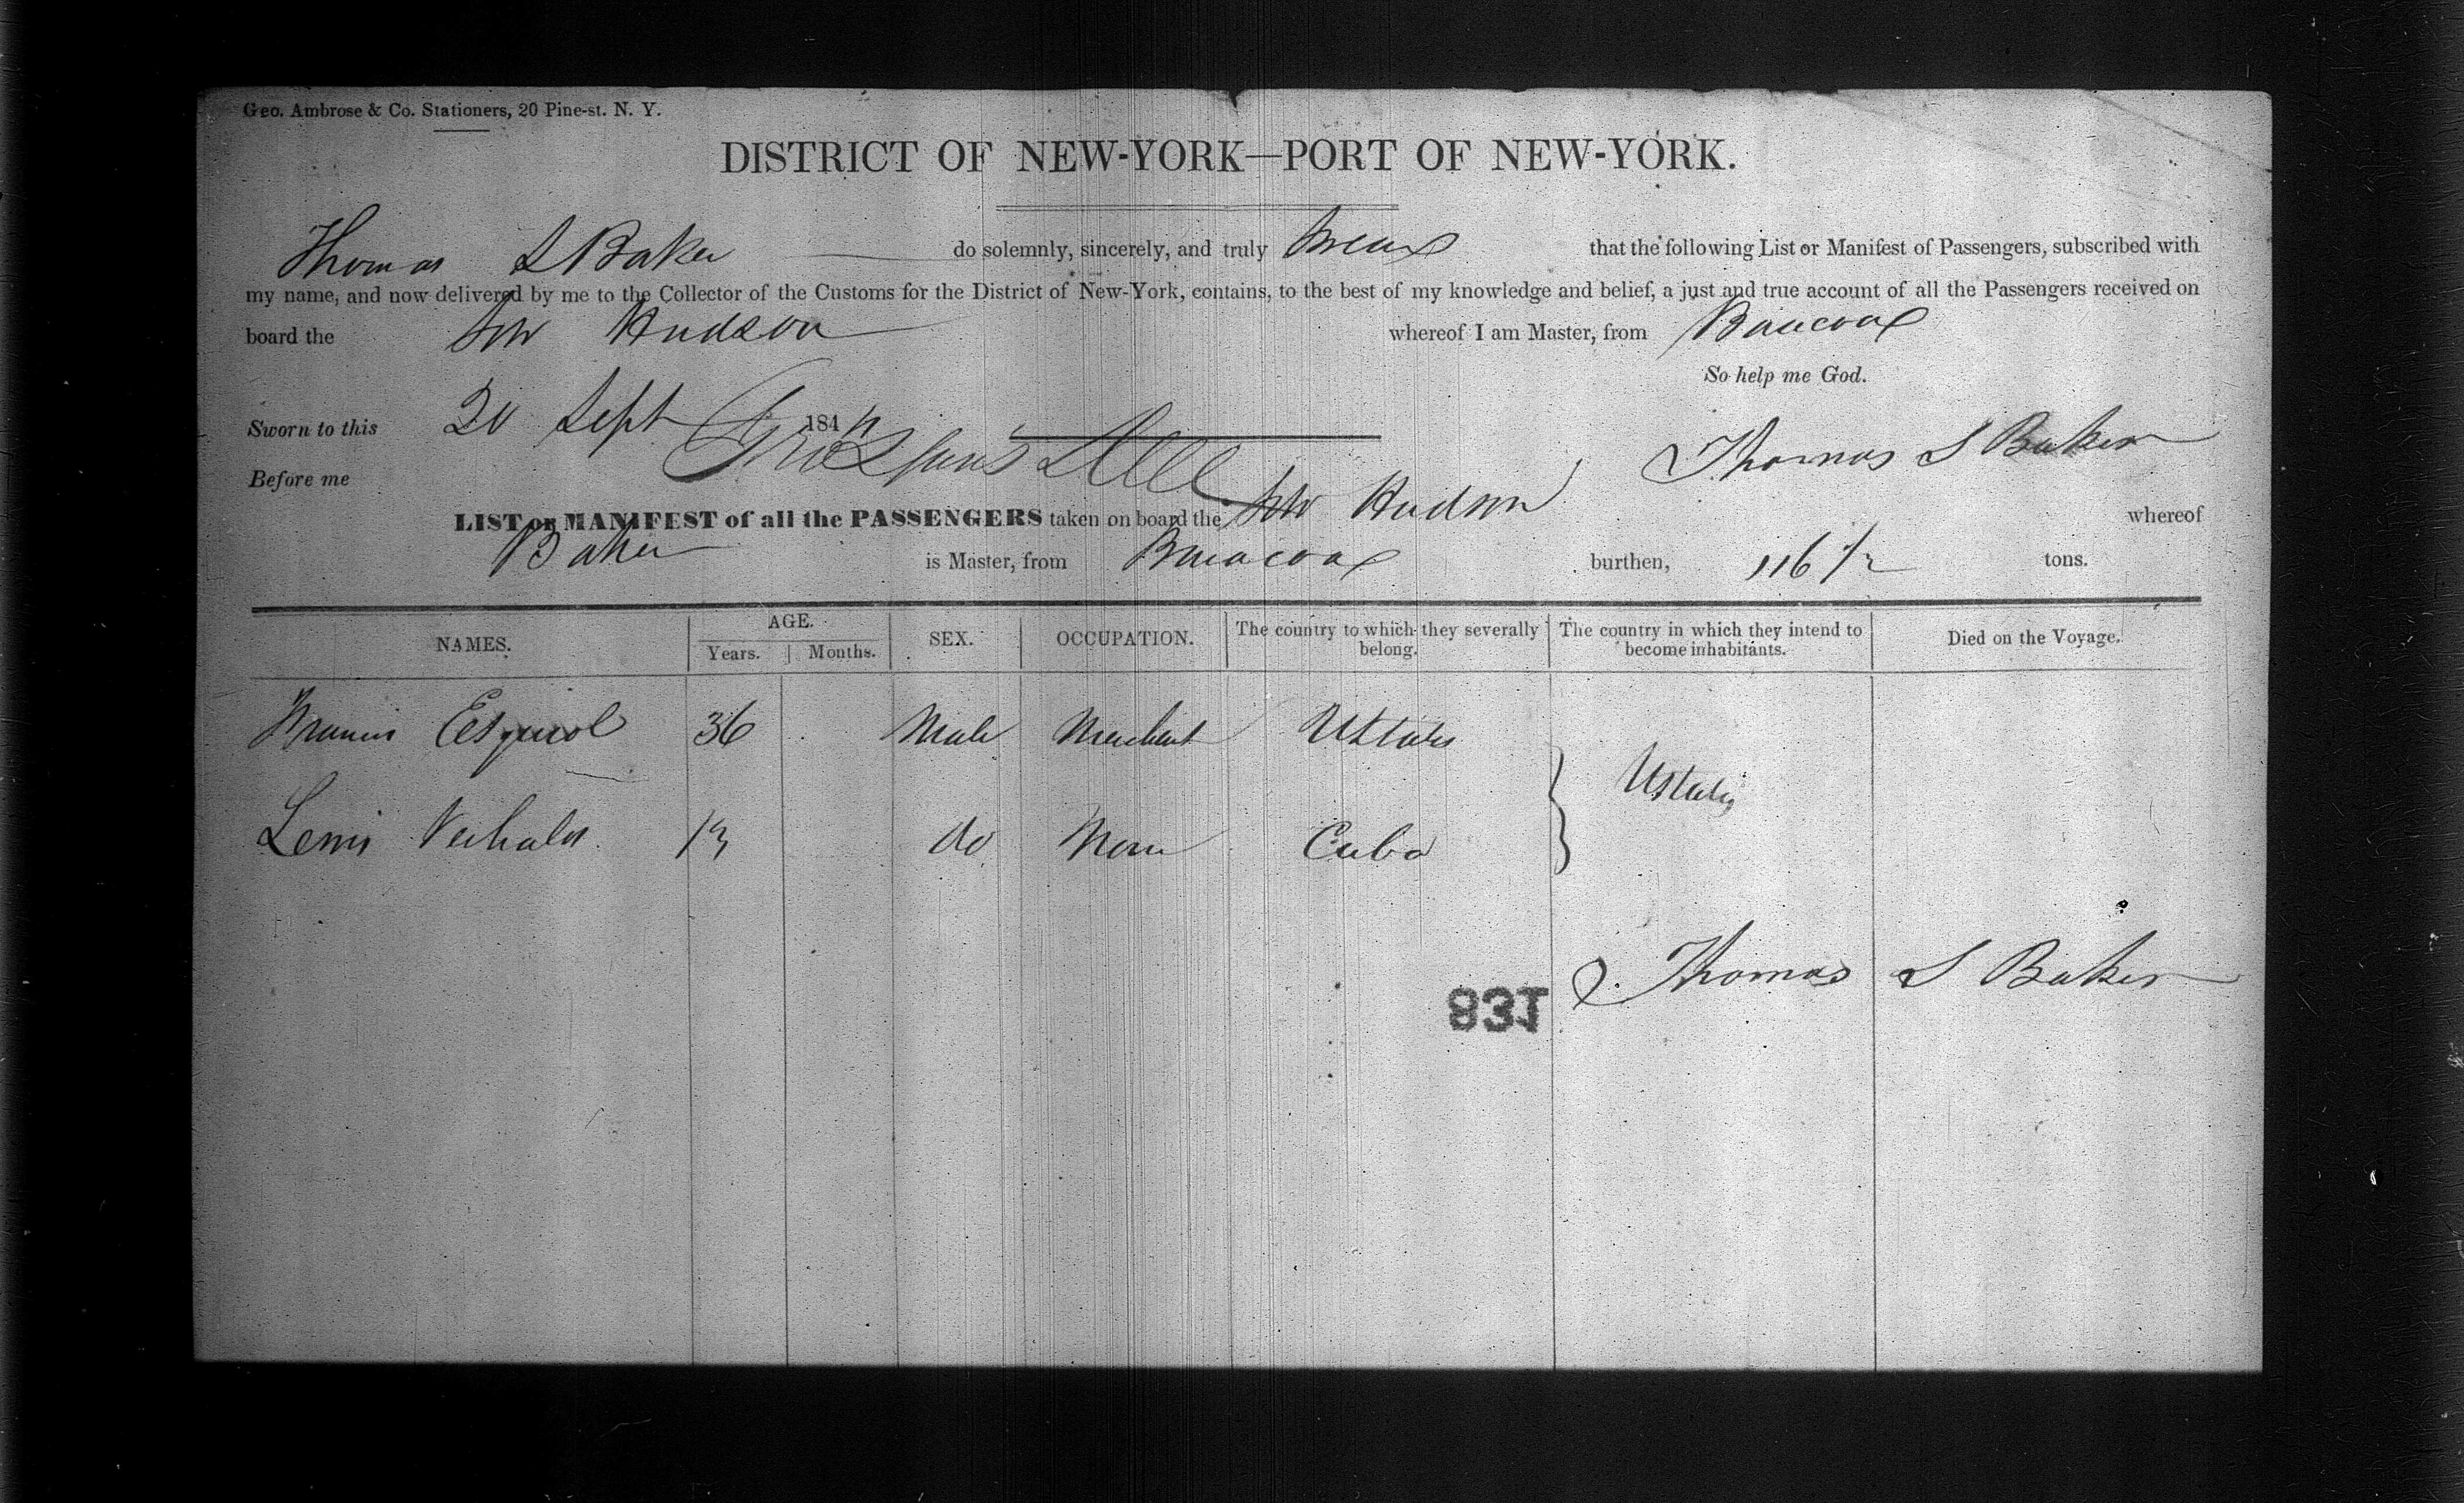 Geo. Ambrose & Co. Stationers, 20 Pine-st. N. Y.
DISTRICT OF NEW-YORK—PORT OF NEW-YORK.
Thomas S Baker do solemnly, sincerely, and truly Swear that the following List or Manifest of Passengers, subscribed with
my name, and now delivered by me to the Collector of the Customs for the District of New-York, contains, to the best of my knowledge and belief, a just and true account of all the Passengers received on
board the Schr Hudson whereof I am Master, from Baracoa
So help me God.
Sworn to this 20 Sept 184 Thomas S Baker
Before me
LIST or MANIFEST of all the PASSENGERS taken on board the Schr Hudson whereof
Baker is Master, from Baracoa burthen, 116 1/2 tons.
NAMES. AGE. Years. Months. SEX. OCCUPATION. The country to which they severally belong. The country in which they intend to become inhabitants. Died on the Voyage.
Francis Esquirol 36 Male Merchant UStates
UStates
Lewis 13 do None Cuba
Thomas S Baker
831